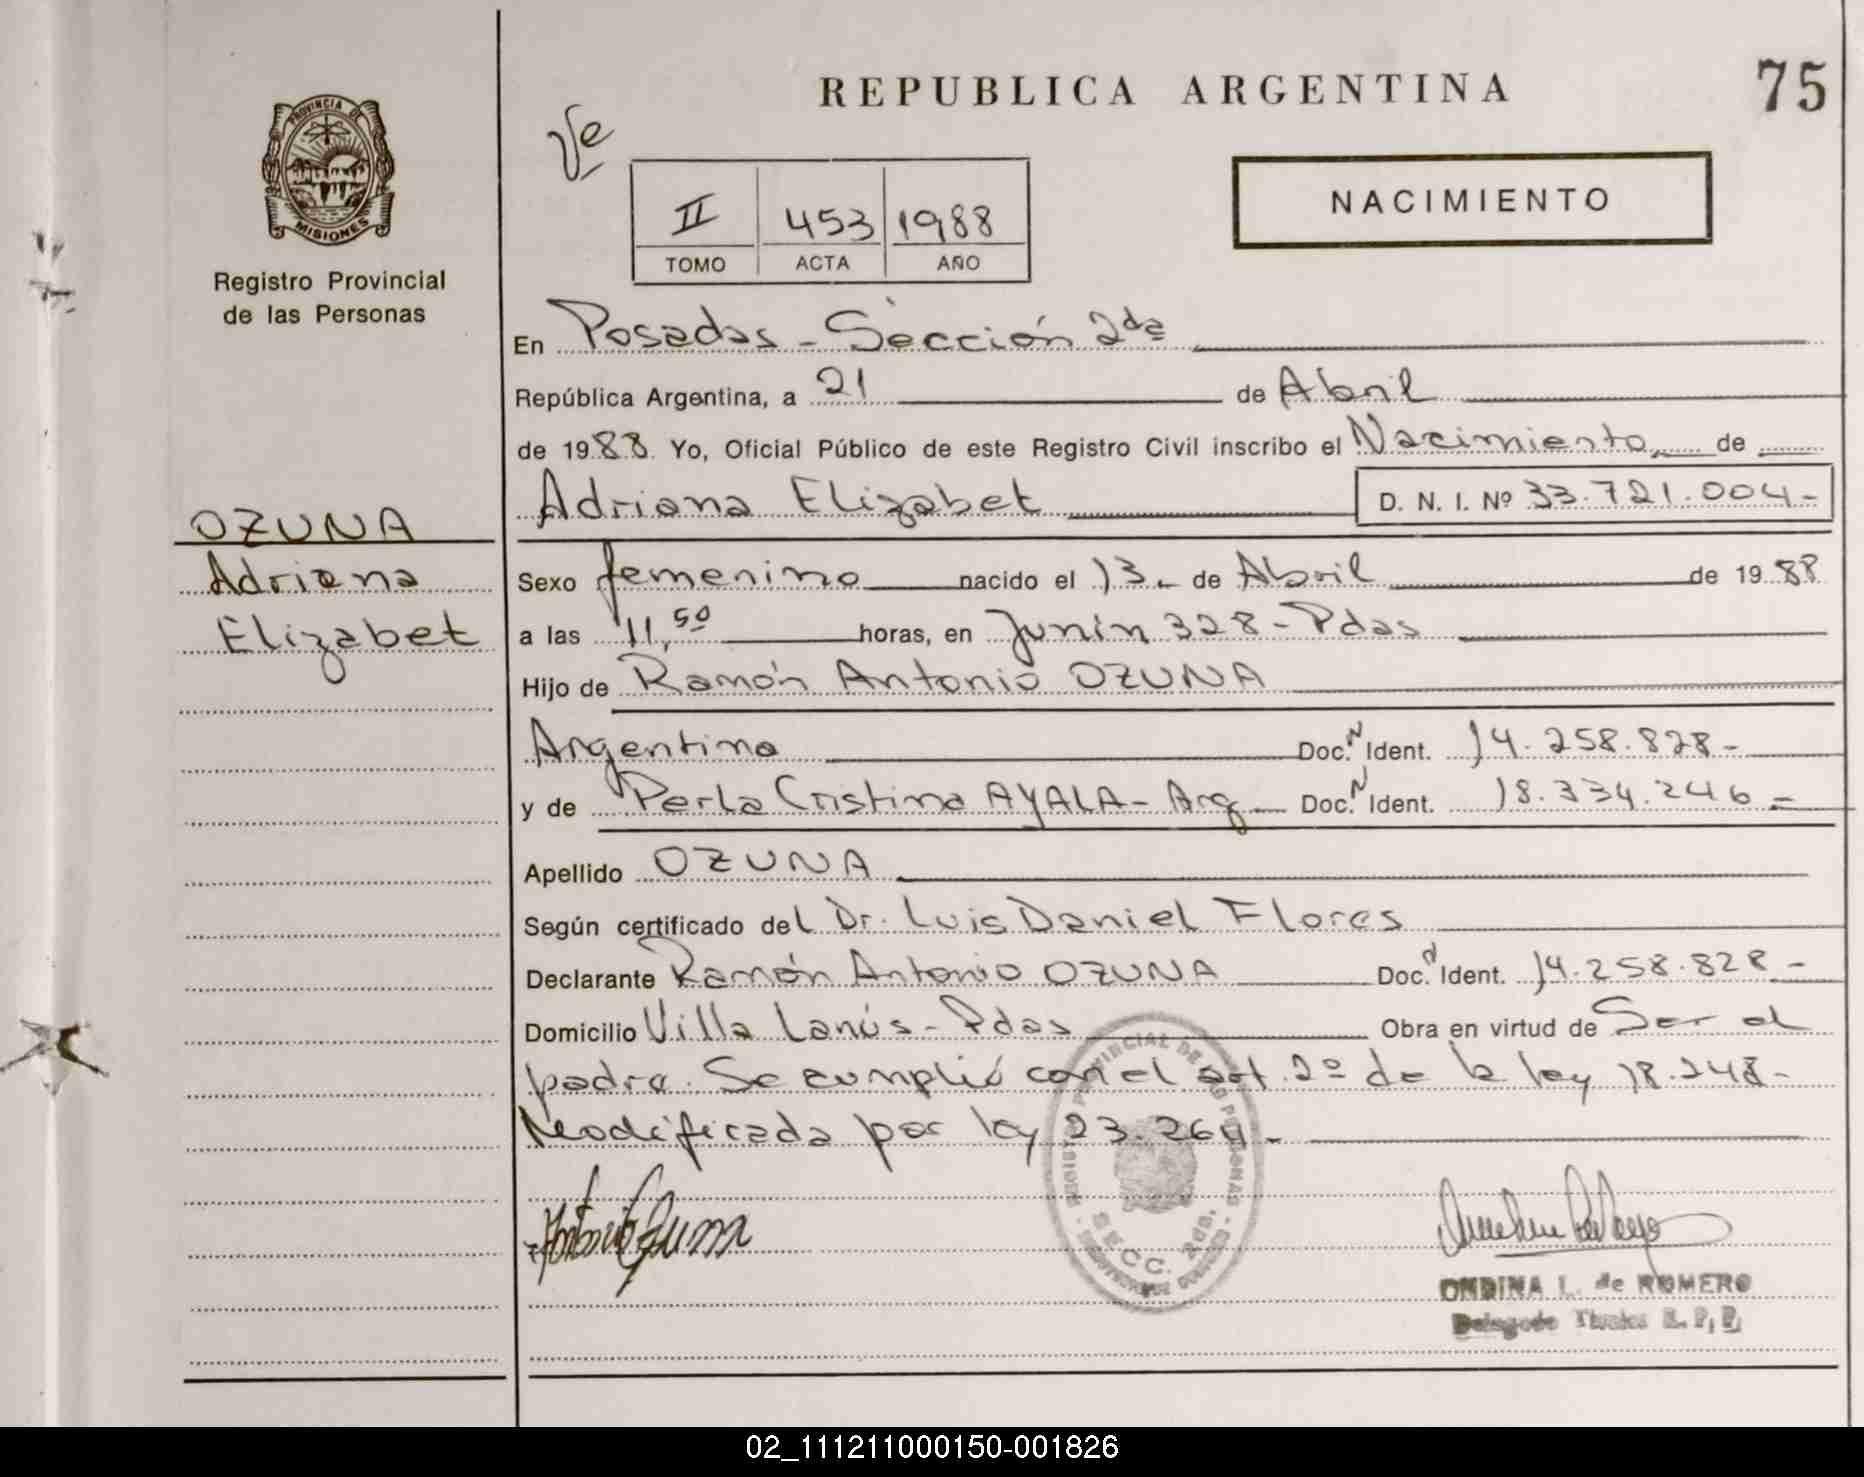 REPUBLICA ARGENTINA
75
PROVINCIA DE
MISIONES
Registro Provincial
de las Personas
Ve
II 453 1988
TOMO ACTA AÑO
NACIMIENTO
En Posadas - Sección 2da
República Argentina, a 21 de Abril
de 1988 Yo, Oficial Público de este Registro Civil inscribo el Nacimiento de
Adriana Elizabet D. N. I. Nº 33.721.004-
OZUNA
Adriana
Elizabet
Sexo femenino nacido el 13 de Abril de 1988
a las 11,50 horas, en Junín 328 - Pdas
Hijo de Ramón Antonio OZUNA
Argentino Doc. N Ident. 14.258.828-
y de Perla Cristina AYALA - Arg Doc. N Ident. 18.334.246-
Apellido OZUNA
Según certificado del Dr. Luis Daniel Flores
Declarante Ramón Antonio OZUNA Doc. Ident. 14.258.828-
Domicilio Villa Lanús - Pdas Obra en virtud de Ser el
padre. Se cumplió con el art. 2º de la ley 18.248-
Modificada por ley 23.264-
Antonio Ozuna
SECC. 2da.
ONDINA L. de ROMERO
Delegado Titular R. P. P.
02_111211000150-001826